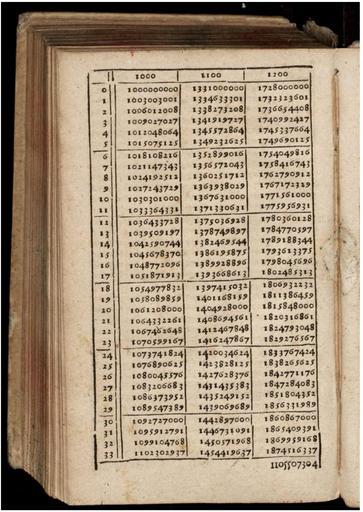 1000 1100 1200
0 1000000000 1331000000 1728000000
1 1003003001 1334633301 1732323601
2 1006012008 1338273208 1736654408
3 1009027027 1341919727 1740992427
4 1012048064 1345572864 1745337664
5 1015075125 1349232625 1749690125
6 1018108216 1352899016 1754049816
7 1021147343 1356572043 1758416743
8 1024192512 1360251712 1762790912
9 1027243729 1363938029 1767172329
10 1030301000 1367631000 1771561000
11 1033364331 1371330631 1775956931
12 1036433728 1375036928 1780360128
13 1039509197 1378749897 1784770597
14 1042590744 1382469544 1789188344
15 1045678370 1386195875 1793613375
16 1048772096 1389928896 1798045696
17 1051871913 1393668613 1802485313
18 1054977832 1397415032 1806932232
19 1058089859 1401168159 1811386459
20 1061208000 1404928000 1815848000
21 1064332261 1408694561 1820316861
22 1067462648 1412467848 1824793048
23 1070599167 1416247867 1829276567
24 1073741824 1420034624 1833767424
25 1076890625 1423828125 1838265625
26 1080045576 1427628376 1842771176
27 1083206683 1431435383 1847284083
28 1086373952 1435249152 1851804352
29 1089547389 1439069689 1856331989
30 1092727000 1442897000 1860867000
31 1095912791 1446731091 1865409391
32 1099104768 1450571968 1869959168
33 1102302937 1454419637 1874516337
1105507304